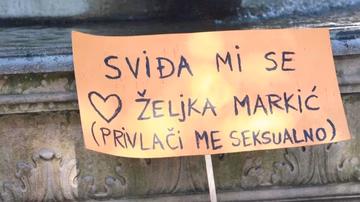 SVIĐA MI SE
♡ ŽELJKA MARKIĆ
(PRIVLAČI ME SEKSUALNO)